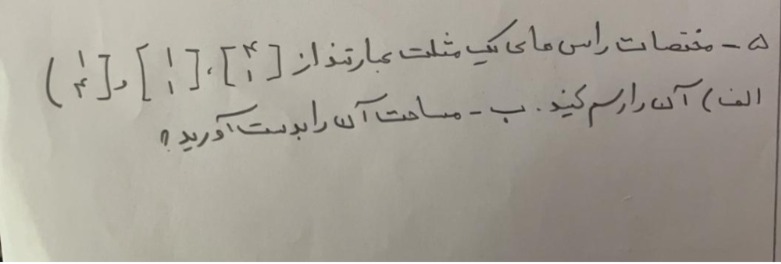 ۵- مختصات راس های یک مثلث عبارتند از [۴ ۱] ، [۱ ۱] و [۱ ۴]
الف) آن را رسم کنید. ب- مساحت آن را بدست آورید؟